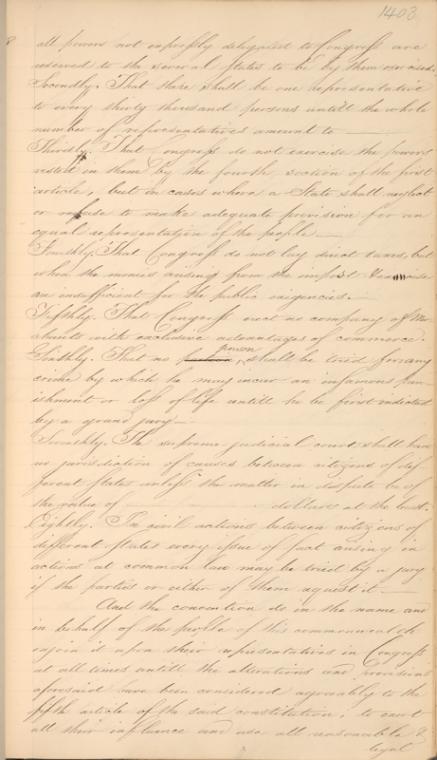 1403
all powers not expressly delegated to Congress are
reserved to the several states to be by them exercised.
Secondly. That there shall be one representative
to every thirty thousand persons untill the whole
number of representatives amount to
Thirdly. That Congress do not exercise the powers
vested in them by the fourth section of the first
article, but in cases where a State shall neglect
or refuse to make adequate provision for an
equal representation of the people.
Fourthly. That Congress do not lay direct taxes, but
when the monies arising from the impost & excise
are insufficient for the public exigencies.
Fifthly. That Congress erect no company of Mer
chants with exclusive advantages of commerce.
Sixthly. That no person shall be tried for any
crime by which he may incur an infamous pun
ishment or loss of life untill he be first indicted
by a grand jury
Seventhly. The supreme judicial court shall have
no jurisdiction of causes between citizens of dif
ferent states unless the matter in dispute be of
the value of dollars at the least.
Eightly. In civil actions between citizens of
different states every issue of fact arising in
actions at common law may be tried by a jury
if the parties or either of them request it
And the convention do in the name and
in behalf of the people of this commonwealth
enjoin it upon their representatives in Congress
at all times untill the alterations and provisions
aforesaid have been considered agreeably to the
fifth article of the said constitution, to exert
all their influence and use all reasonable &
legal